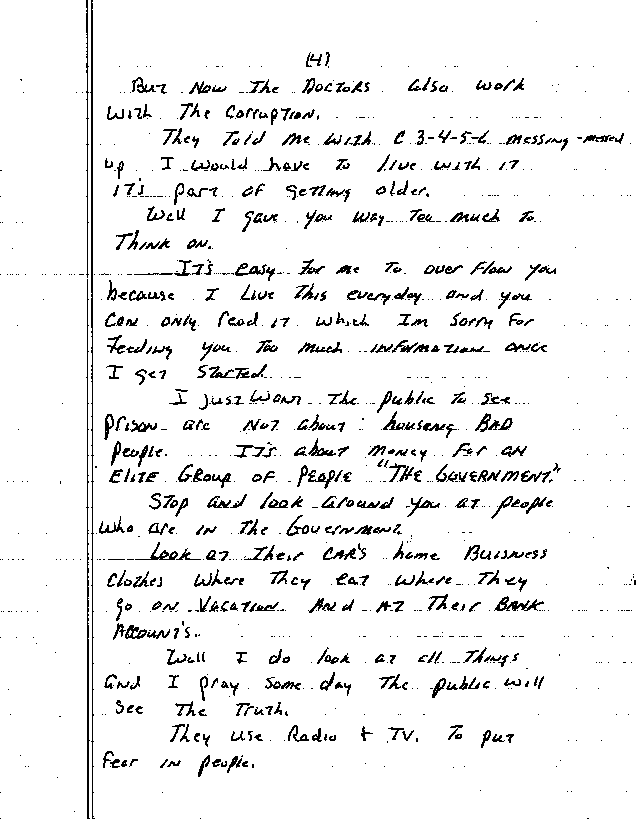 (4)
But Now The Doctors also work
With The Corruption.
They Told me with C 3-4-5-6 messing-messed
up I would have To live with it
it's part of getting older.
Well I gave you way Too much To
Think on.
It's easy for me To over flow you
because I Live This everyday and you
Can only read it which Im sorry for
feeding you Too much information once
I get started
I just want The public To see
prison are Not about: houseing BAD
people. It's about money for an
Elite Group of People "THE GOVERNMENT."
Stop and look around you at people
who are in The Government.
Look at Their CAR'S home Buisness
Clothes where They eat where They
go on Vacation And at Their BANK
Account's.
Well I do look at all Things
and I pray some day The public will
See The Truth.
They use Radio + TV. To put
fear in people.